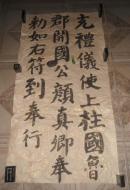 充禮儀使上柱國魯
郡開國公顏真卿奉
勅如右符到奉行